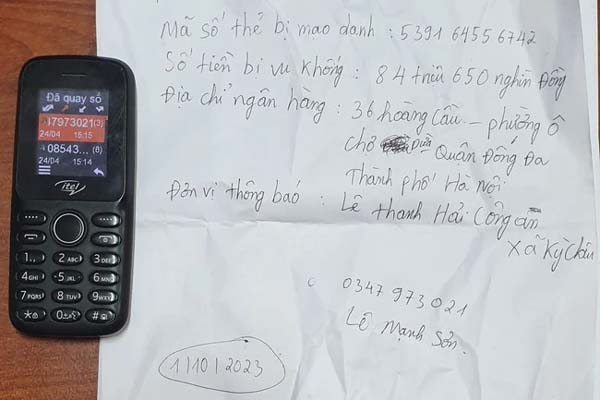 Mã số thẻ bị mạo danh : 5391 6455 6742
Số tiền bị vu khống : 84 triệu 650 nghìn Đồng
Địa chỉ ngân hàng : 36 hoàng Cầu – phường Ô
chợ Dừa Quận Đống Đa
Thành phố Hà Nội
Đơn vị thông báo : Lê Thanh Hải Công an
Xã Kỳ Châu
0347 973021
Lê Mạnh Sơn.
1/10/2023
Đã quay số
17973021(3)
24/04 15:15
08543... (6)
24/04 15:14
itel
1
2 ABC
3 DEF
4 GHI
5 JKL
6 MNO
7 PQRS
8 TUV
9 WXYZ
*
0
#